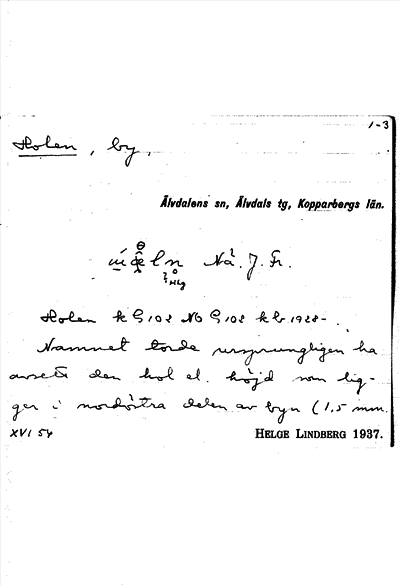 1-3
Holen, by,
Älvdalens sn, Älvdals tg, Kopparbergs län.
Nå. J. Fr.
Holen k G 102 Nb G 102 kb 1928-
Namnet torde ursprungligen ha
avsett den hol el. höjd som lig-
ger i nordöstra delen av byn (1,5 mm.
XVI 54
HELGE LINDBERG 1937.